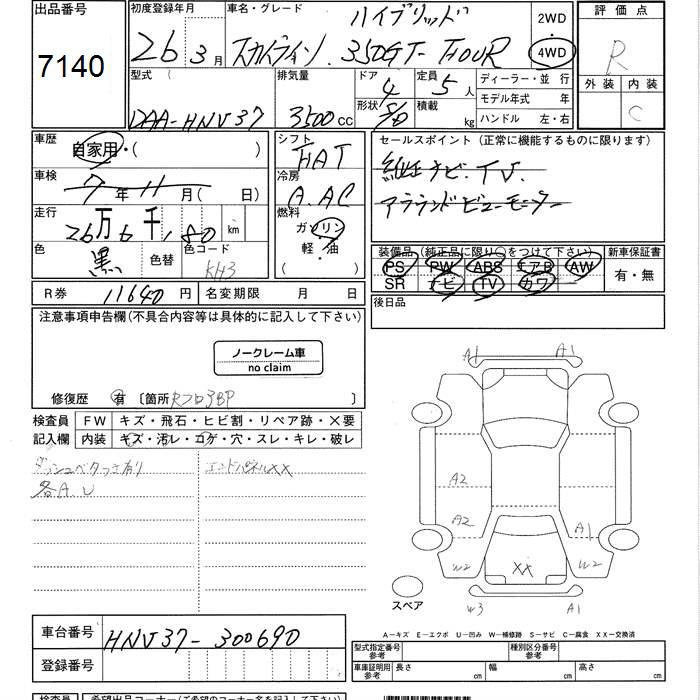 出品番号
7140
初度登録年月
26 3月
車名・グレード
ハイブリッド
スカイライン 350GT-FOUR
2WD
4WD
評価点
R
外装 内装
C
型式
DAA-HNV37
排気量
3500cc
ドア
4
形状
定員
5人
積載
kg
ディーラー・並行
モデル年式 年
ハンドル 左・右
車歴
自家用・( )
車検
7年11月( 日)
走行
26万6千,180km
色
黒
色替
色コード
KH3
シフト
FAT
冷房
A.AC
燃料
ガソリン
軽・油
( )
セールスポイント(正常に機能するものに限ります)
純正ナビ.TV.
アラウンドビューモニター
装備品(純正品に限り○をつけて下さい)
PS PW ABS エアB AW
SR ナビ TV カワ
新車保証書
有・無
後日品
R券 11640円
名変期限 月 日
注意事項申告欄(不具合内容等は具体的に記入して下さい)
ノークレーム車
no claim
修復歴 有 〔箇所Rフロア BP 〕
検査員
記入欄
FW キズ・飛石・ヒビ割・リペア跡・×要
内装 キズ・汚レ・コゲ・穴・スレ・キレ・破レ
ダッシュベタつき有り
各A.U
エンドパネルXX
A1 A1
A2
A2 A1
W2 XX W2
スペア
W3 A1
A－キズ E－エクボ U－凹み W－補修跡 S－サビ C－腐食 XX－交換済
車台番号
HNV37-300690
登録番号
型式指定番号
参考
種別区分番号
参考
車庫証明用
参考
長さ cm 幅 cm 高さ cm
検査員
希望出品コーナー(ご希望のコーナー名を記入して下さい)